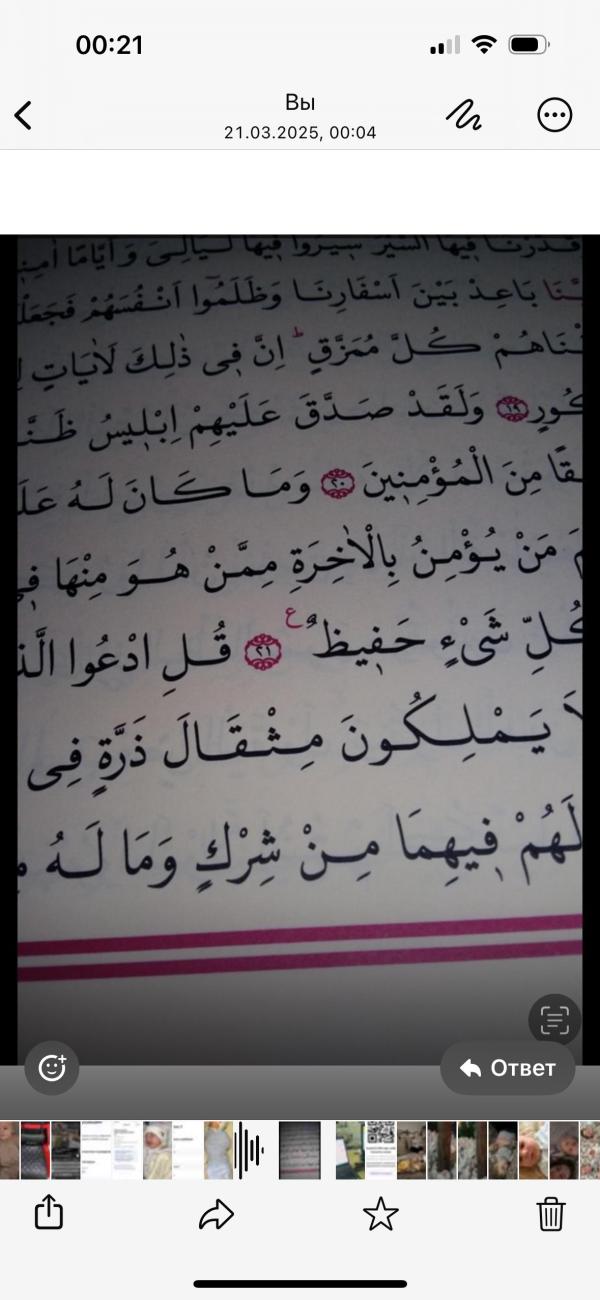 00:21
Вы
21.03.2025, 00:04
قَدَّرْنَا فٖيهَا السَّيْرَ سٖيرُوا فٖيهَا لَيَالِىَ وَاَيَّامًا
بَاعِدْ بَيْنَ اَسْفَارِنَا وَظَلَمُٓوا اَنْفُسَهُمْ
كُلَّ مُمَزَّقٍ ط اِنَّ فٖى ذٰلِكَ لَاٰيَاتٍ
كُورٍ ١٩ وَلَقَدْ صَدَّقَ عَلَيْهِمْ اِبْلٖيسُ
قًا مِنَ الْمُؤْمِنٖينَ ٢٠ وَمَا كَانَ لَهُ
مَنْ يُؤْمِنُ بِالْاٰخِرَةِ مِمَّنْ هُوَ مِنْهَا فٖى
كُلِّ شَىْءٍ حَفٖيظٌ ع ٢١ قُلِ ادْعُوا
لَا يَمْلِكُونَ مِثْقَالَ ذَرَّةٍ فِى
لَهُمْ فٖيهِمَا مِنْ شِرْكٍ وَمَا لَهُ
Ответ